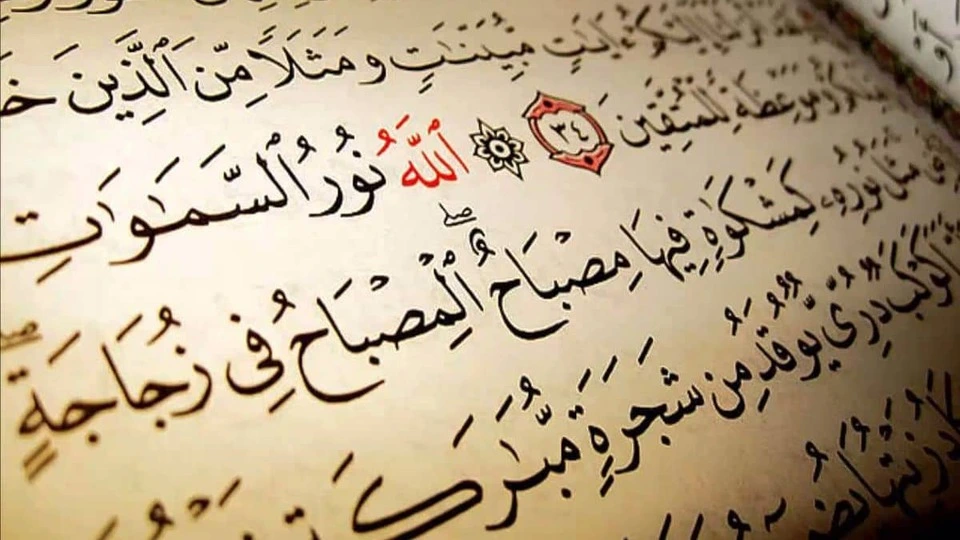 ءَايَٰتٍ مُّبَيِّنَٰتٍ وَمَثَلًا مِّنَ ٱلَّذِينَ
وَمَوْعِظَةً لِّلْمُتَّقِينَ ٣٤ ٱللَّهُ نُورُ ٱلسَّمَٰوَٰتِ
مَثَلُ نُورِهِۦ كَمِشْكَوٰةٍ فِيهَا مِصْبَاحٌ ۖ ٱلْمِصْبَاحُ فِى زُجَاجَةٍ ۖ
كَوْكَبٌ دُرِّىٌّ يُوقَدُ مِن شَجَرَةٍ مُّبَٰرَكَةٍ
زَيْتُهَا